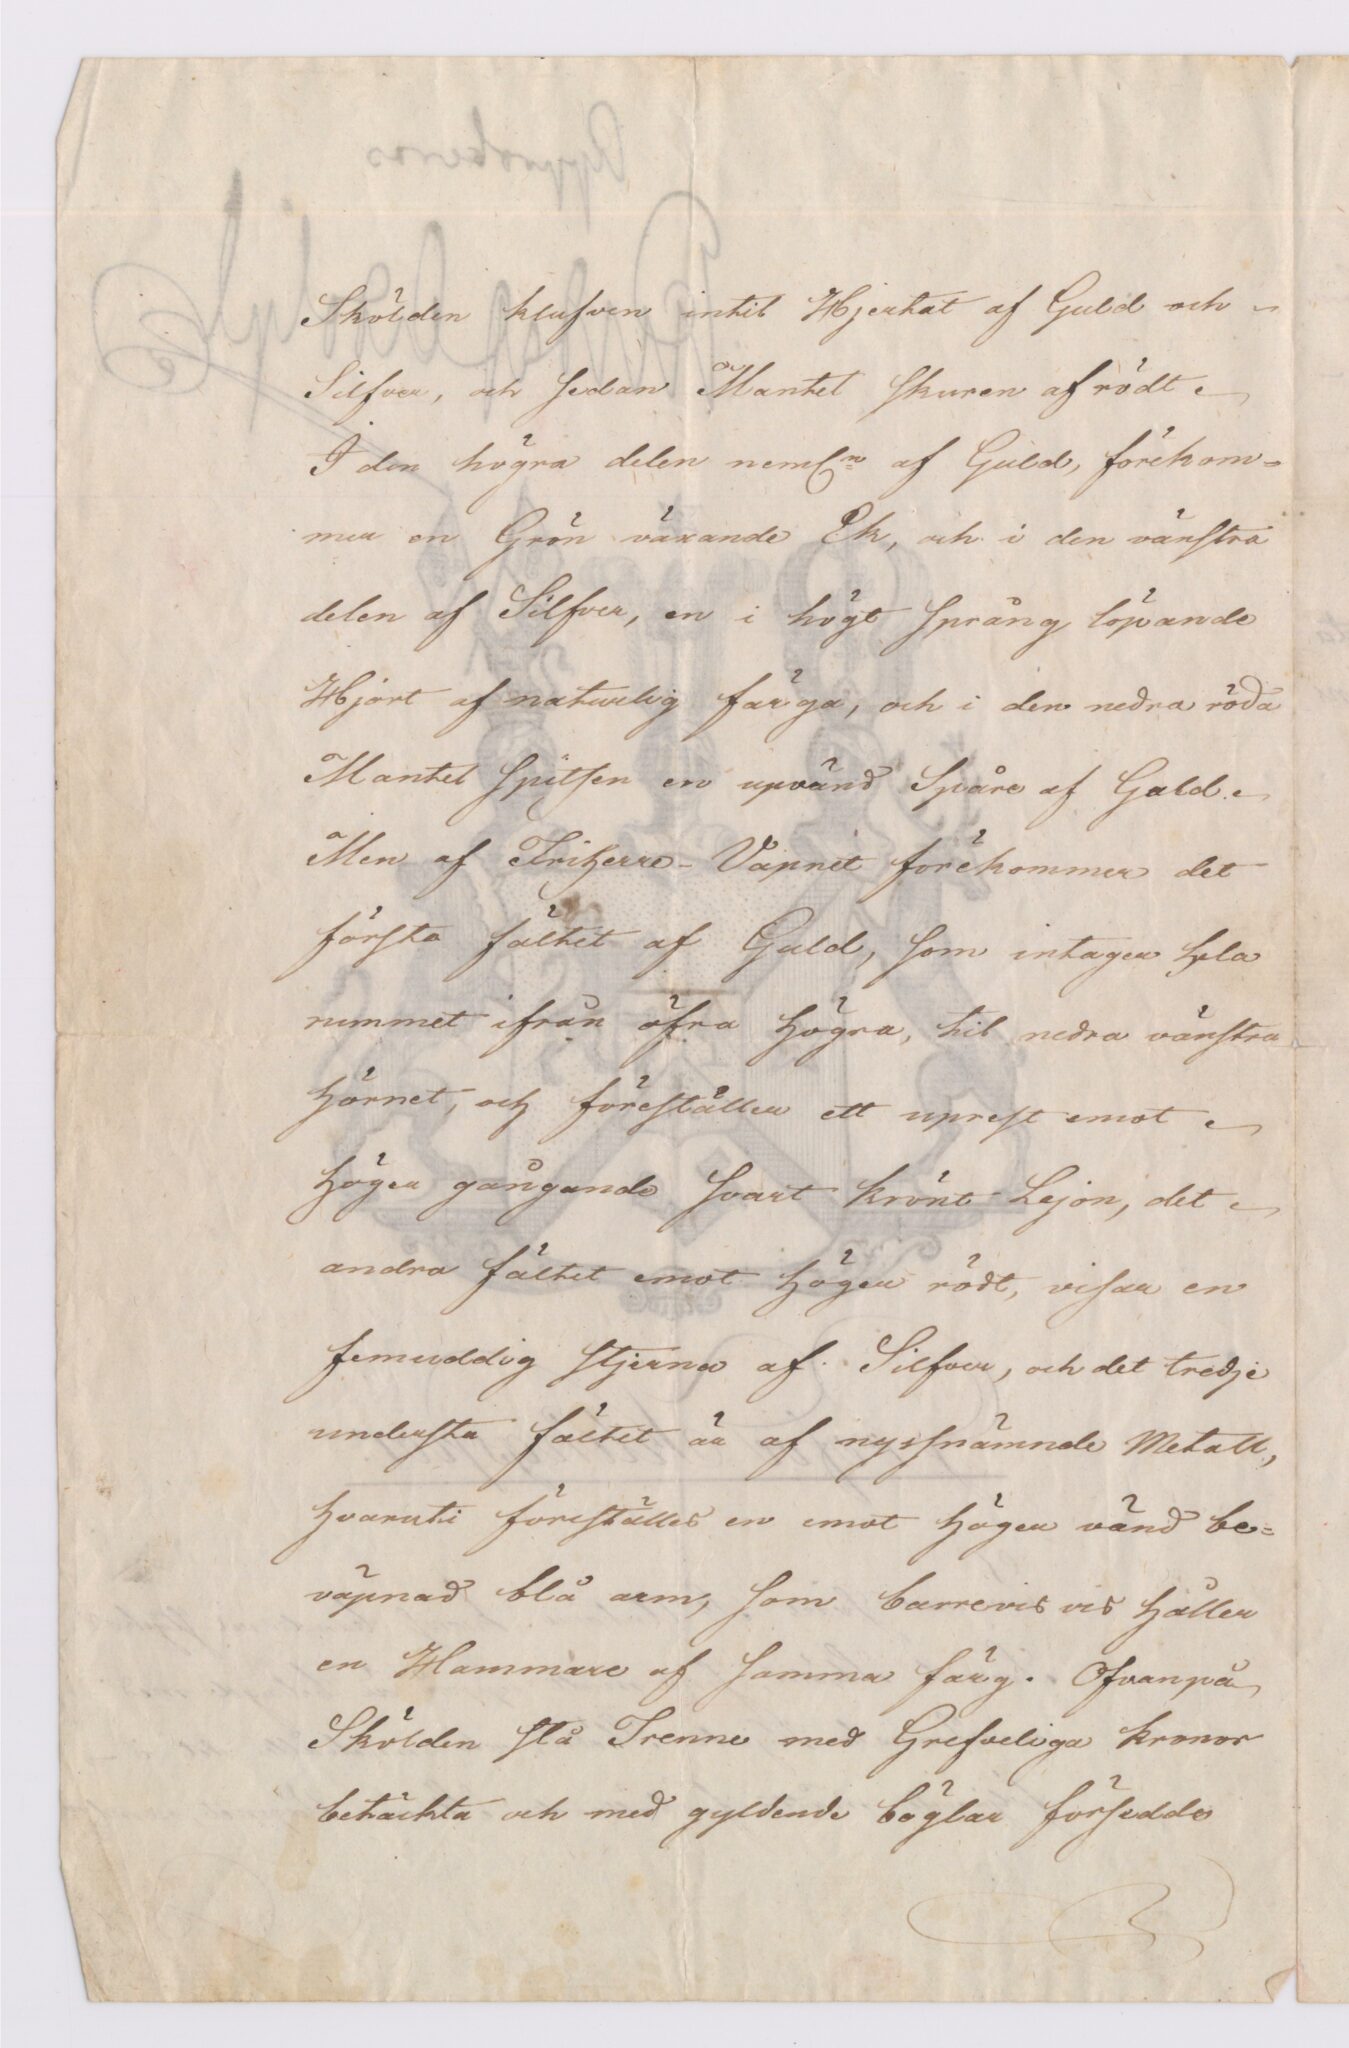 Skölden klufven intil Hjertat af Guld och
Silfver, och sedan Mantel skuren af rödt
I den högra delen neml:n af Guld, förekom-
mer en Grön växande Ek, och i den vänstra
delen af Silfver, en i högt språng löpande
Hjort af naturlig färga, och i den nedra röda
Mantel spitsen en upvänd Spåre af Guld.
Men af Friherre-Vapnet förekommer det
första fältet af Guld, som intager hela
rummet ifrån öfra högra, til nedra vänstra
hörnet, och föreställer ett uprest emot
höger gångande svart krönt Lejon, det
andra fältet emot höger rödt, visar en
femuddig stjerna af Silfver, och det tredje
understa fältet är af nyssnämnde Metall,
hvaruti föreställes en emot höger vänd be=
väpnad blå arm, som barrevis vis håller
en Hammare af samma färg. Ofvanpå
Skölden stå Trenne med Grefveliga kronor
betäckta och med gyldende böglar försedde